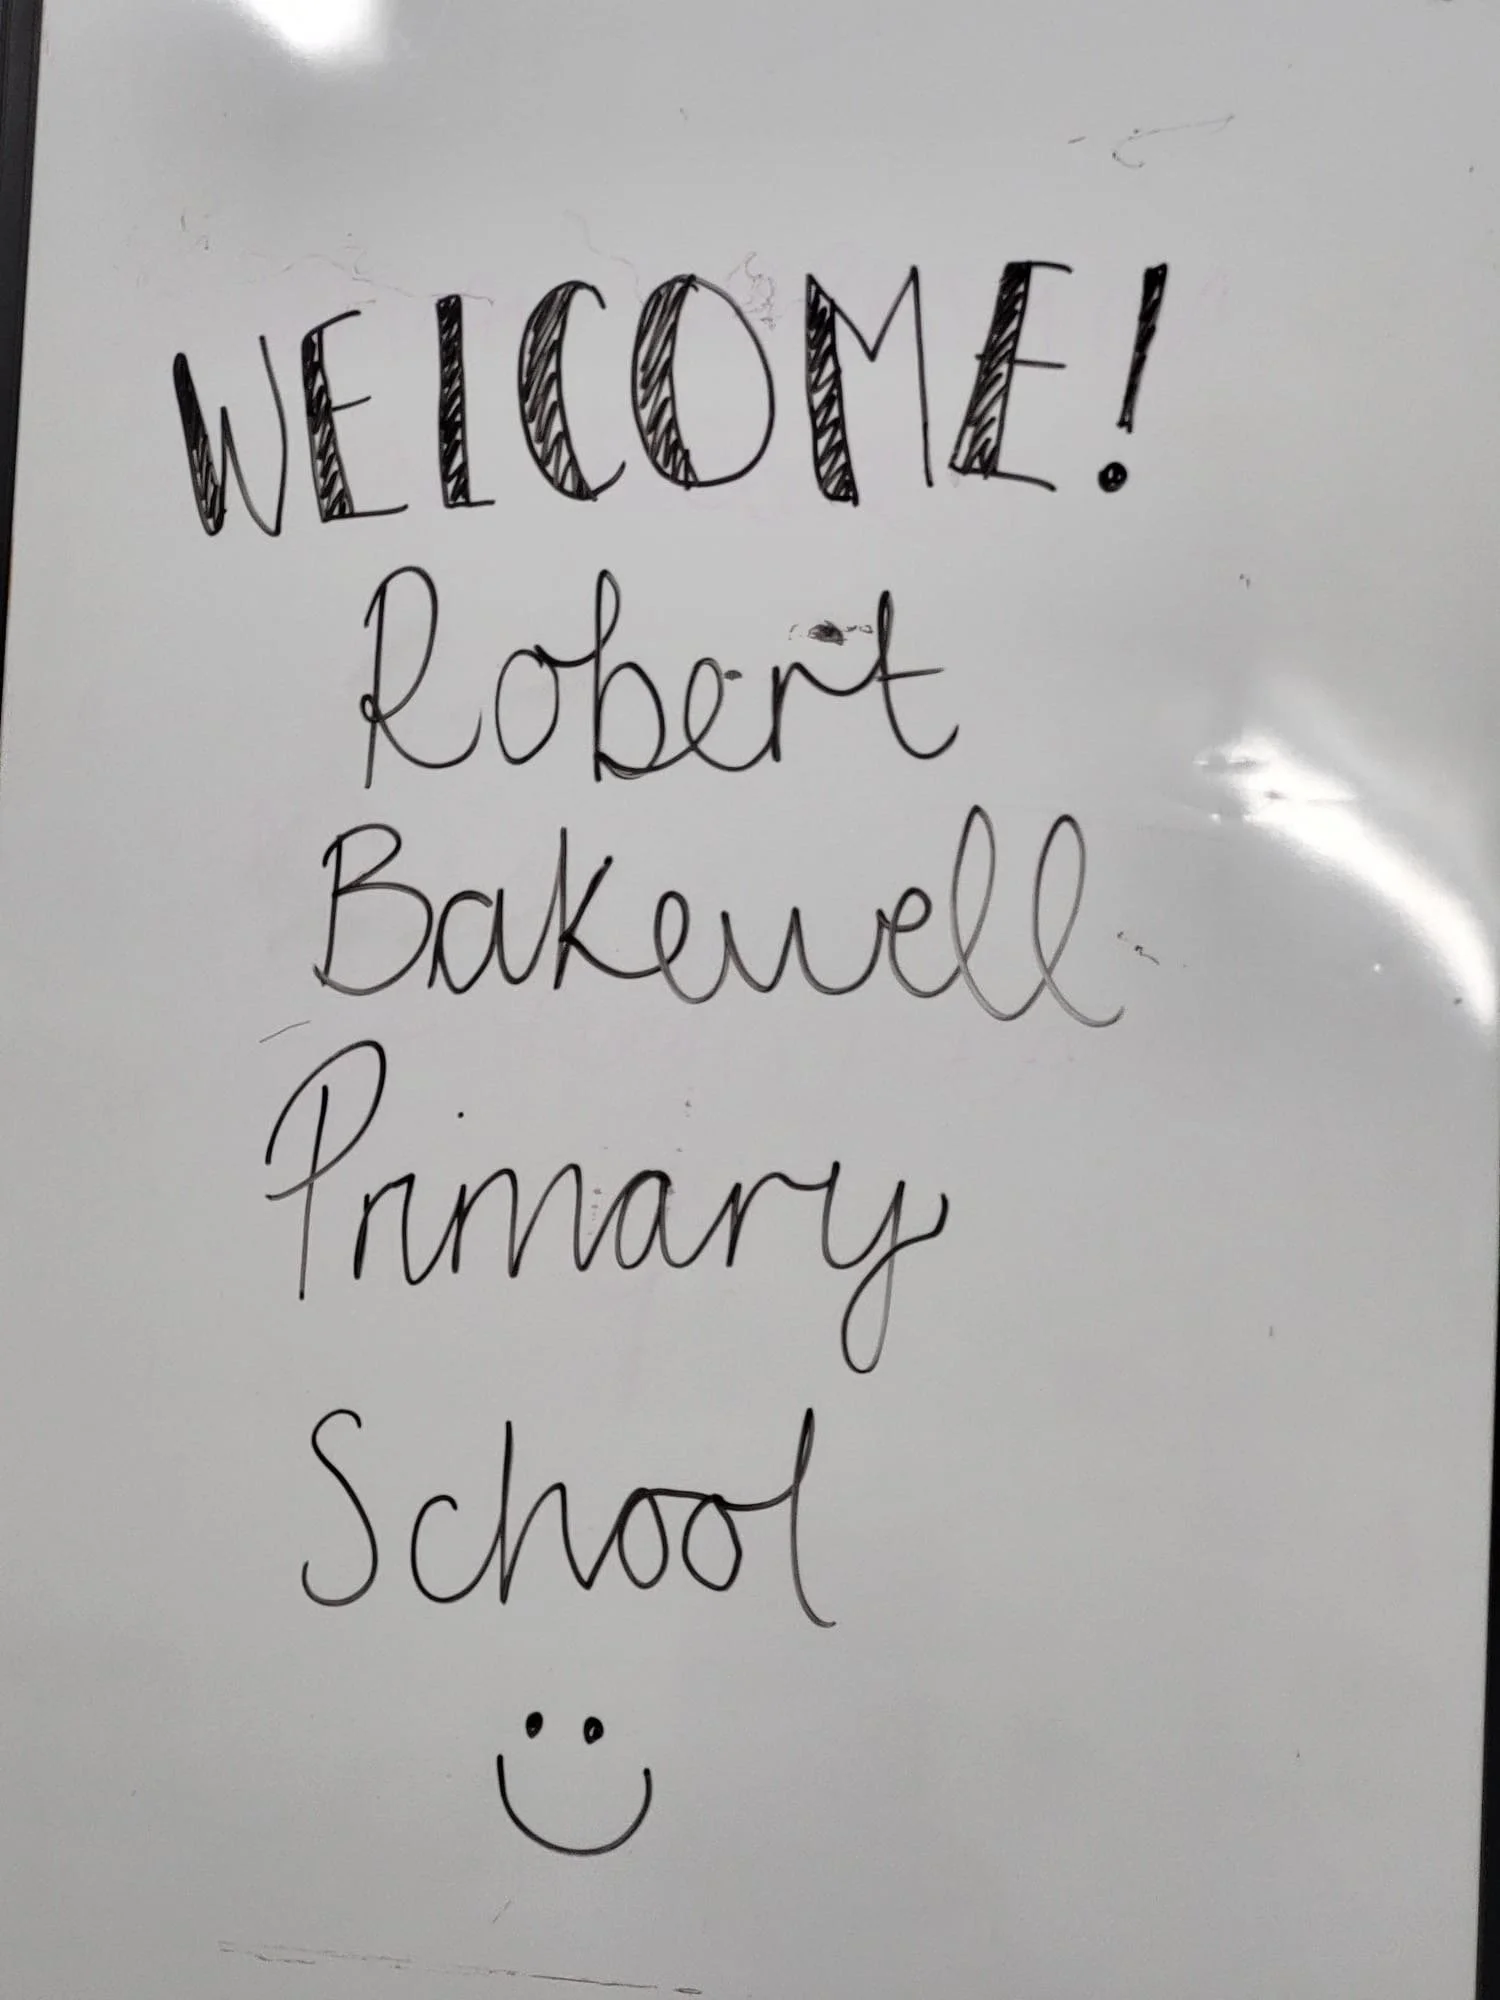 WELCOME!
Robert
Bakewell
Primary
School